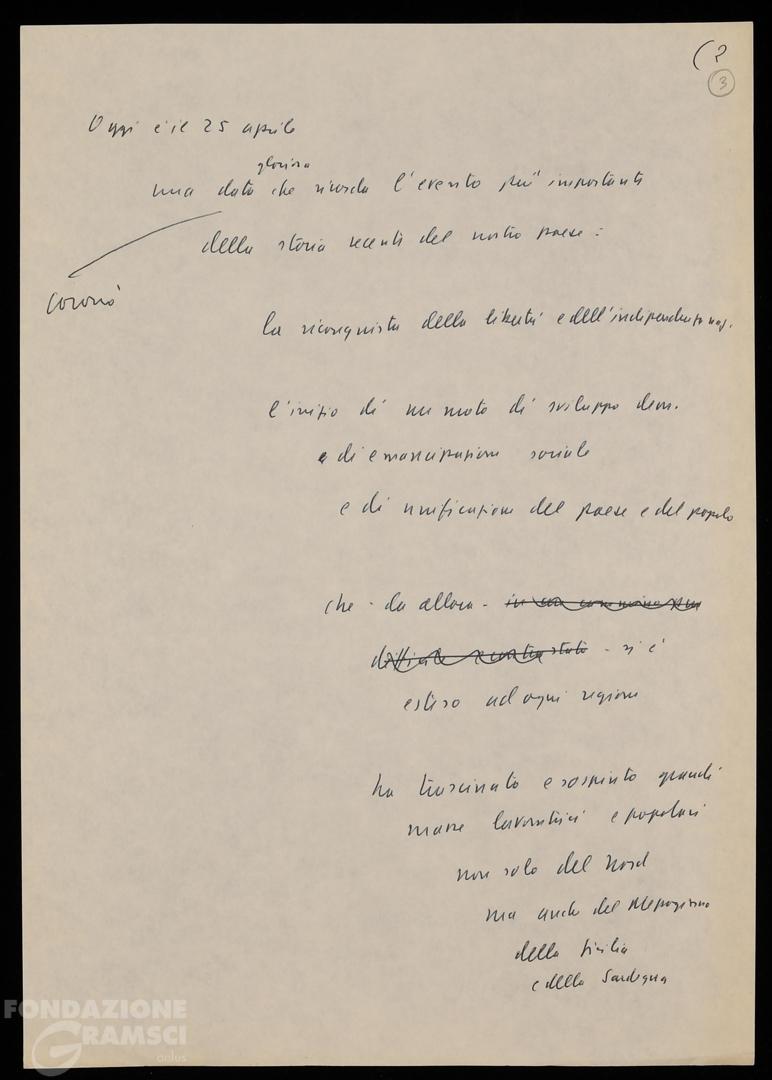 (2
3
Oggi è il 25 aprile
gloriosa
una data che ricorda l'evento più importante
della storia recente del nostro paese:
coronò
la riconquista della libertà e dell'indipendenza naz.
l'inizio di un moto di sviluppo dem.
e di emancipazione sociale
e di unificazione del paese e del popolo
che - da allora - in un cammino
difficile e contrastato - si è
esteso ad ogni regione
ha trascinato e sospinto grandi
masse lavoratrici e popolari
non solo del Nord
ma anche del Mezzogiorno
della Sicilia
e della Sardegna
FONDAZIONE
GRAMSCI
onlus